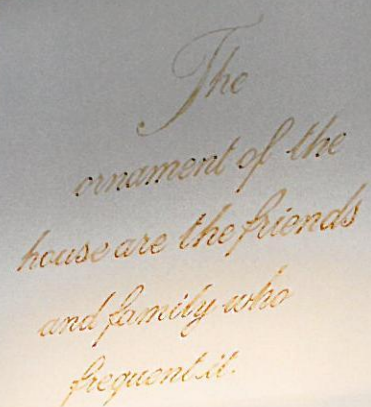 The
ornament of the
house are the friends
and family who
frequent it.